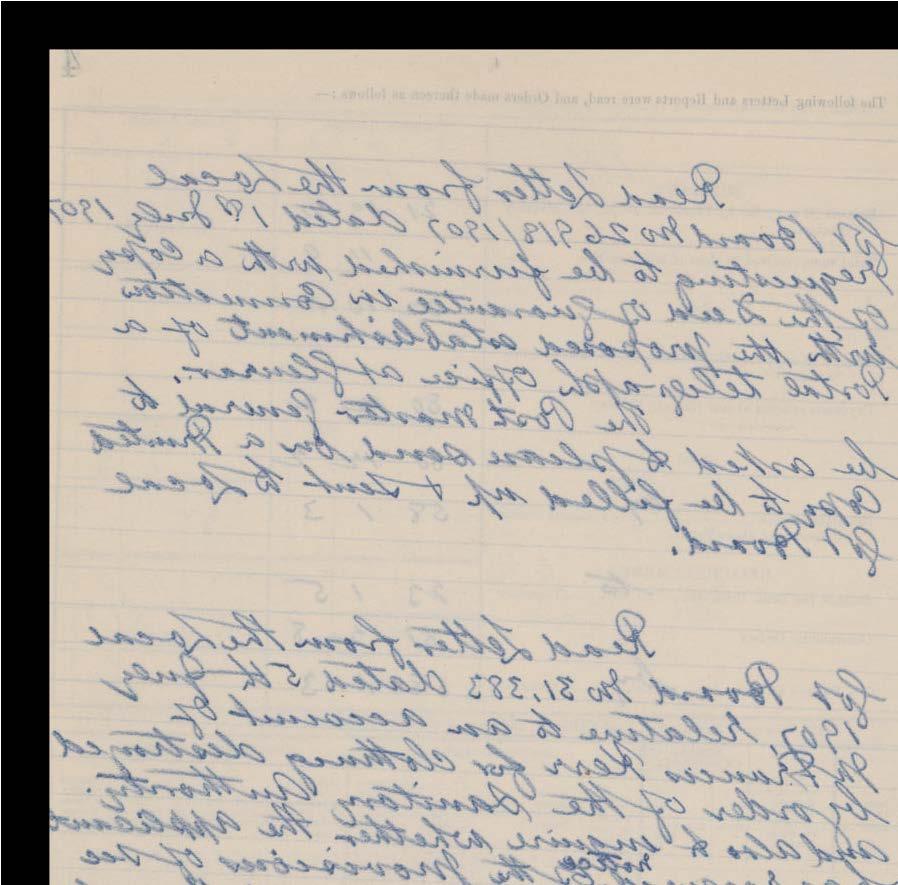 4
The following Letters and Reports were read, and Orders made thereon as follows :—
Read Letter from the Local
Govt Board No 26918/1907 dated 1st July 1907
requesting to be furnished with a Copy
of the Deed of Guarantee in Connection
with the proposed establishment of a
Postal telegraph Office at
The Post Master General to
be asked to please send on a Printed
Copy to be filled up & sent to Local
Govt Board.
Read Letter from the Local
Govt Board No 31,383 dated 5th July
1907, relative to an account of
Mr Francis Kerr for clothing destroyed
by order of the Sanitary Authority.
and also to inquire whether the applicant
notice
the provisions of the